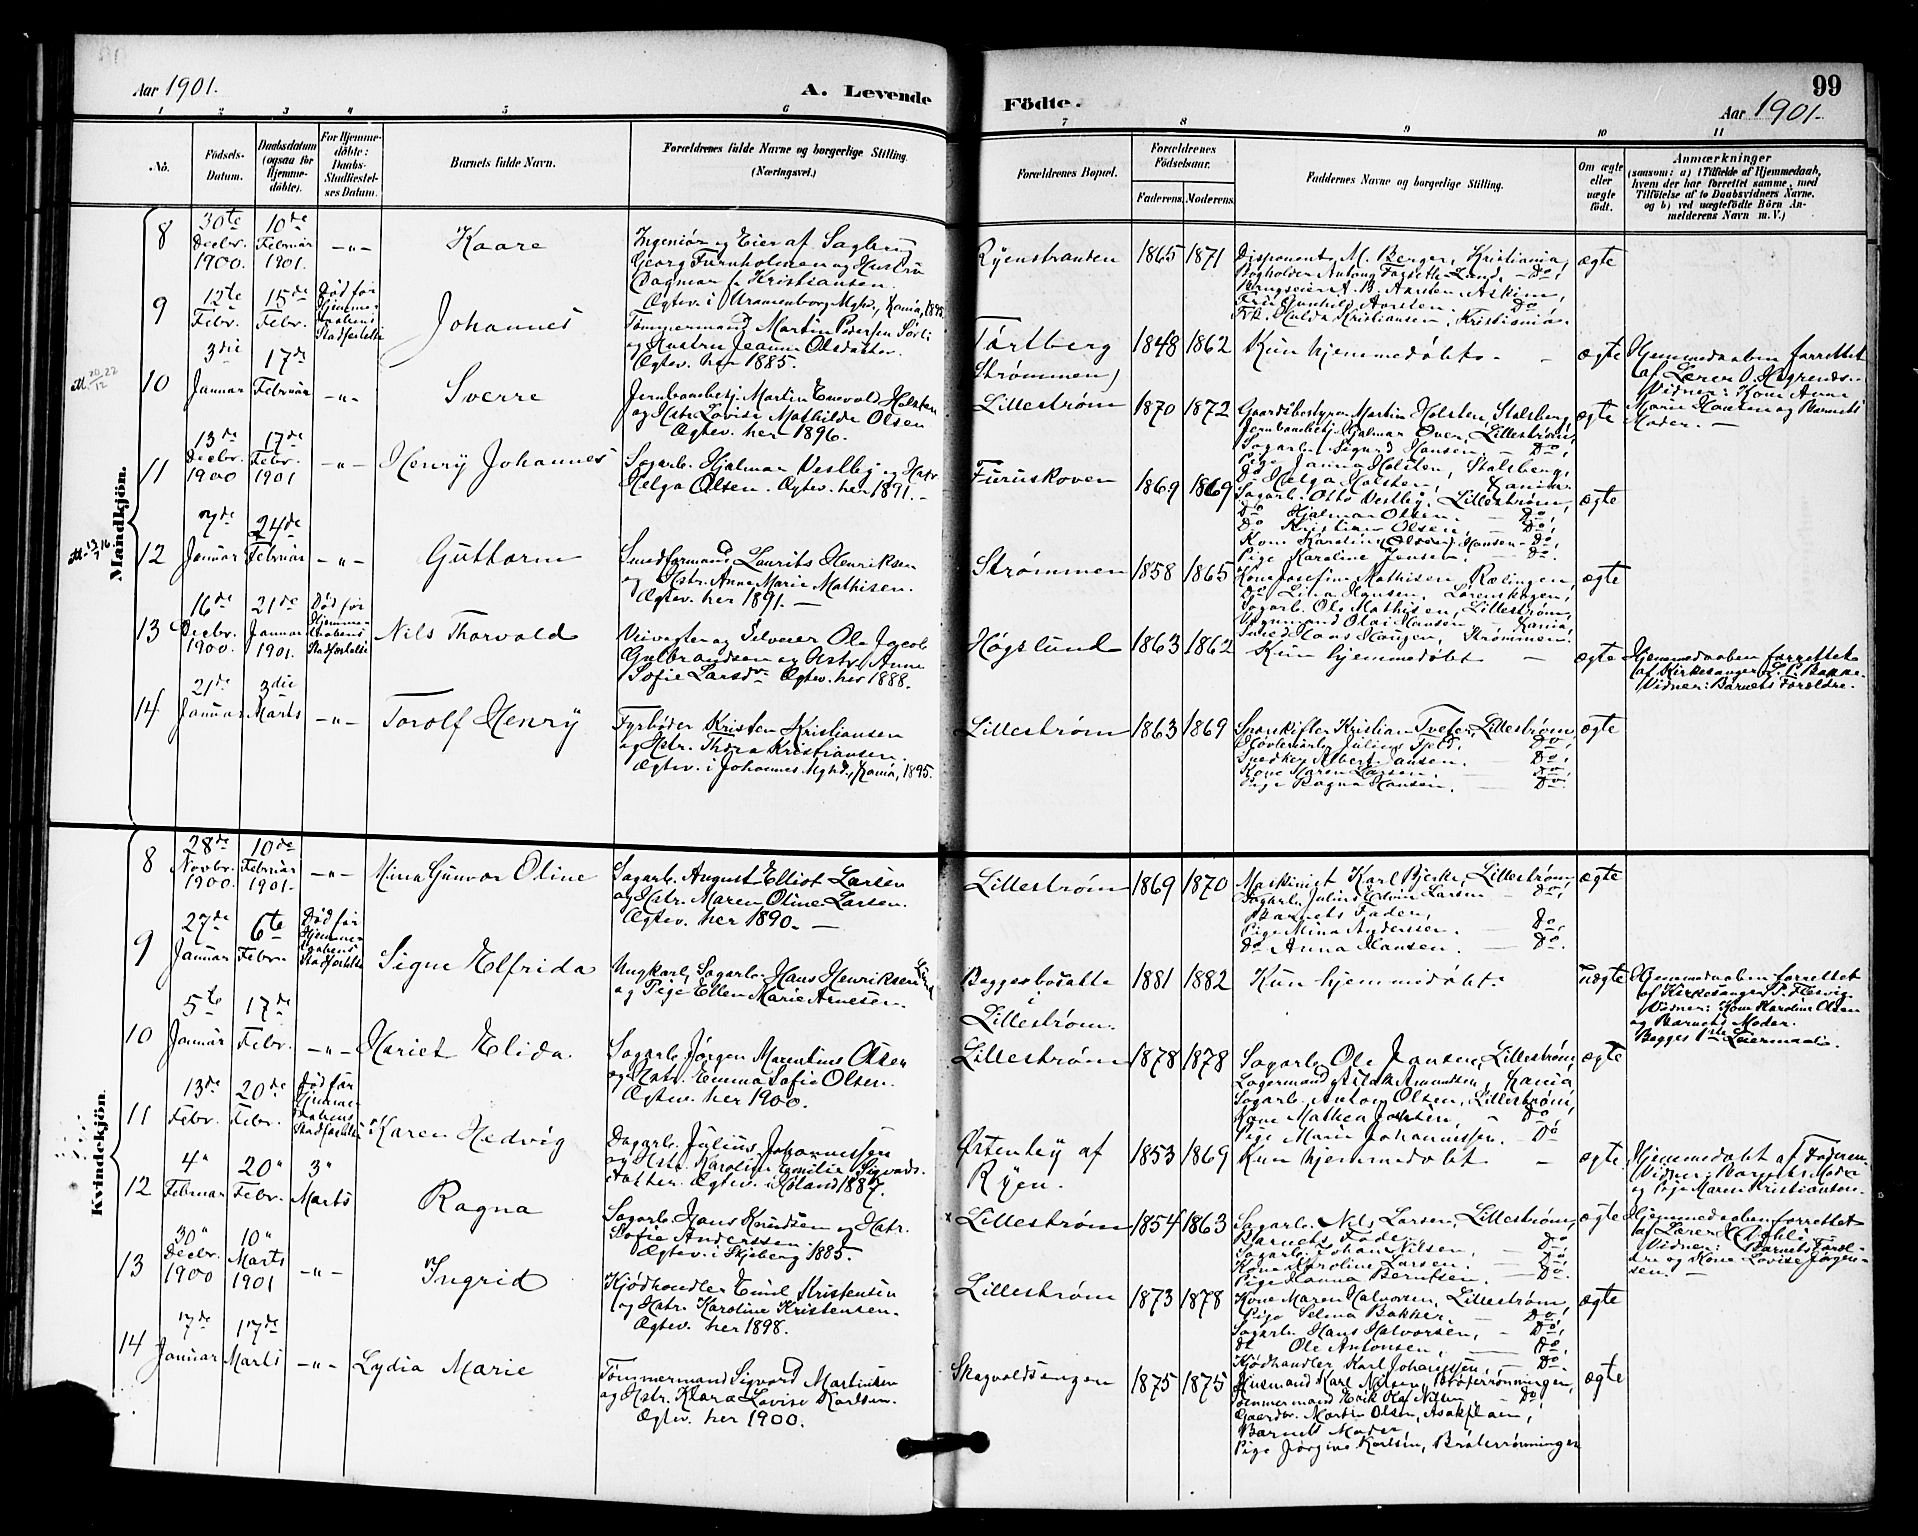 Aar 1901.
A. Levende
Födte.
99
Aar 1901.
1 2 3 4 5 6 7 8 9 10 11
No.
Födsels-
Datum.
Daabsdatum
(ogsaa for
Hjemme-
döbte).
For Hjemme-
döbte:
Daabs-
Stadfæstel-
ses Datum.
Barnets fulde Navn.
Forældrenes fulde Navne og borgerlige Stilling.
(Næringsvei.)
Forældrenes Bopæl.
Forældrenes
Födselsaar.
Faderens. Moderens.
Faddernes Navne og borgerlige Stilling.
Om ægte
eller
uægte
födt.
Anmærkninger
(saasom: a) i Tilfælde af Hjemmedaab,
hvem der har forrettet samme, med
Tilföielse af to Daabsvidners Navne,
og b) ved uægtefödte Börn An-
melderens Navn m. V.)
Mandkjön.
8
30te
Decbr.
1900.
10de
Februar
1901.
-"-
Kaare
Ingeniør og Eier af Sagbrug
Georg Furuholmen og Hustru
Dagmar f. Kristiansen.
Ryenstranden
1865 1871
Disponent M. Berger, Kristiania,
Fru Gunhild Aarsten. Do
Frk. Hulda Kristiansen, Kristiania
ægte
9
12te
Febr.
15de
Febr.
Død før
Hjemme-
daabens
Stadfæstelse
Johannes
Tømmermand Martin Pedersen
og Hustru Jeanna Olsdatter.
Ægtev. her 1885.
Tørtberg
Strømmen
1848 1862
Kun hjemmedøbt.
ægte
Hjemmedaaben forrettet
af Lærer O.
Vidner: Kone Anne
Marie Hansen og Barnets
Moder. -
10
3die
Januar
17de
Februar
-"-
Sverre
Jernbanebetj. Martin Enevold Holsten
og Hstr. Lovise Mathilde Olsen
Ægtev. her 1896.
Lillestrøm
1870 1872
Gaardsbestyrer Martin Holsten, Stalsberg,
Jernbanebetj. Hjalmar Oven, Lillestrøm,
Sagarb. Sigurd Hansen, - Do,
Pige Janna Holsten, Stalsberg,
Do Helga Holsten,
ægte
11
13de
Decbr.
1900
17de
Febr.
1901
-"-
Henry Johannes
Sagarb. Hjalmar Vestby og Hstr.
Helga Olsen. Ægtev. her 1891. -
Furuskoven
1869 1869
Sagarb. Otto Vestby, Lillestrøm,
Do Hjalmar Olsen. - Do,
Do Kristian Olsen, - Do,
Kone Karoline Hansen - Do,
Pige Karoline Jensen. - Do.
ægte
12
7de
Januar
24de
Februar
-"-
Guttorm
Smedformand Laurits Henriksen
og Hstr. Anne Marie Mathisen.
Ægtev. her 1891. -
Strømmen
1858 1865
Kone Josefine Mathisen, Rælingen,
Do Lina Hansen, Lørenskogen,
Sagarb. Ole Mathisen, Lillestrøm,
Vognmand Olai Hansen - Kania,
Smed Hans Haugen, Strømmen.
ægte
13
16de
Decbr.
1900
21de
Januar
1901.
Død før
Hjemme-
daabens
Stadfæstelse
Nils Thorvald
Veivogter og Selveier Ole Jacob
Gulbrandsen og Hstr. Anne
Sofie Larsdr. Ægtev. her 1888.
Høgslund
1863 1862
Kun hjemmedøbt -
ægte
Hjemmedaaben forrettet
af Kirkesanger L. P. Bakke.
Vidner: Barnets Forældre.
14
21de
Januar
3die
Marts
-"-
Torolf Henry
Fyrbøder Kristen Kristiansen
og Hstr. Thora Kristiansen.
Ægtev. i Johannes Mghd., Kania, 1895.
Lillestrøm
1863 1869
Sporskifter Kristian Tveter, Lillestrøm,
Høvleriarb. Julius Fjeld. Do,
Snedker Albert Jansen. - Do,
Kone Maren Larsen. - Do,
Pige Ragna Hansen. - Do.
ægte
Kvindekjön.
8
28de
Novbr.
1900.
10de
Februar
1901.
-"-
Mina Gunvor Oline
Sagarb. August Elliot Larsen
og Hstr. Maren Oline Larsen.
Ægtev. her 1890. -
Lillestrøm
1869 1870
Maskinist Karl Bjerke, Lillestrøm,
Sagarb. Julius Edvin Larsen - Do,
Barnets Fader,
Pige Mina Anderssen. - Do,
Do Anna Hansen. - Do.
ægte
9
27de
Januar
6te
Febr.
Død før
Hjemme-
daabens
Stadfæstelse
Signe Elfrida
Ungkarl, Sagarb. Hans Henriksen
og Pige Ellen Marie Arnesen.
Begges bosatte
i
Lillestrøm.
1881 1882
Kun hjemmedøbt.
uægte
Hjemmedaaben forrettet
af Kirkesanger P. Flesvig.
Vidner: Kone Karoline Olsen
og Barnets Moder.
Begges 1ste Leiermaal.
10
5te
Januar
17de
Febr.
-"-
Hariet Elida
Sagarb. Jørgen Marentius Olsen
og Hstr. Emma Sofie Olsen.
Ægtev. her 1900.
Lillestrøm
1878 1878
Sagarb. Ole Jansen, Lillestrøm,
Lagermand Amundsen, Kania,
Sagarb. Anton Olsen, Lillestrøm,
Kone Mathea - Do,
Pige Marie Johannessen. - Do
ægte
11
13de
Febr.
20de
Febr.
Død før
Hjemme-
daabens
Stadfæstelse
Karen Hedvig
Dagarb. Julius Johannessen
og Hstr. Karoline Emilie Sigvards-
datter. Ægtev. i Høland 1887.
Østenby af
Ryen.
1853 1869
Kun hjemmedøbt -
ægte
Hjemmedøbt af Faderen.
Vidner: Barnets Moder
og Pige Maren Kristiansen.
12
4"
Februar
20"
Febr.
3"
Marts
Ragna
Sagarb. Hans Knudsen og Hstr.
Sofie Anderssen.
Ægtev. i Skjeberg 1885.
x Lillestrøm
1854 1863
Sagarb. Nils Larsen, Lillestrøm,
Barnets Fader, Do
Sagarb. Johan Nilsen, - Do,
Kone Karoline Larsen. - Do,
Pige Hanna Berntsen. - Do.
ægte
Hjemmedaaben forrettet
af Lærer H. Dahl.
Vidner: Barnets Foræl-
dre og Kone Lovise Jørgen-
sen. -
13
30"
Decbr.
1900
10"
Marts
1901
-"-
Ingrid
Kjødhandler Emil Kristensen
og Hstr. Karoline Kristensen.
Ægtev. her 1898.
Lillestrøm
1873 1878
Kone Maren Halvorsen, Lillestrøm,
Pige Selma Bakken. - Do,
Sagarb. Hans Halvorsen, - Do,
do Ole Antonsen, - Do,
Kjødhandler Karl Johanssen, - Do
ægte
14
17de
Januar
17de
Marts
-"-
Lydia Marie
Tømmermand Sigvard Martinsen
og Hstr. Klara Lovise Karlsen.
Ægtev. her 1900.
Skogvoldsengen
1875 1875
Husmand Karl Nilsen, Bråterrønningen,
Tømmermand Erik Nilsen, - Do,
Gaardbr. Martin Olsen, Asakplan,
Barnets Moder,
Pige Jørgine Karlsen, Bråterrønningen
ægte